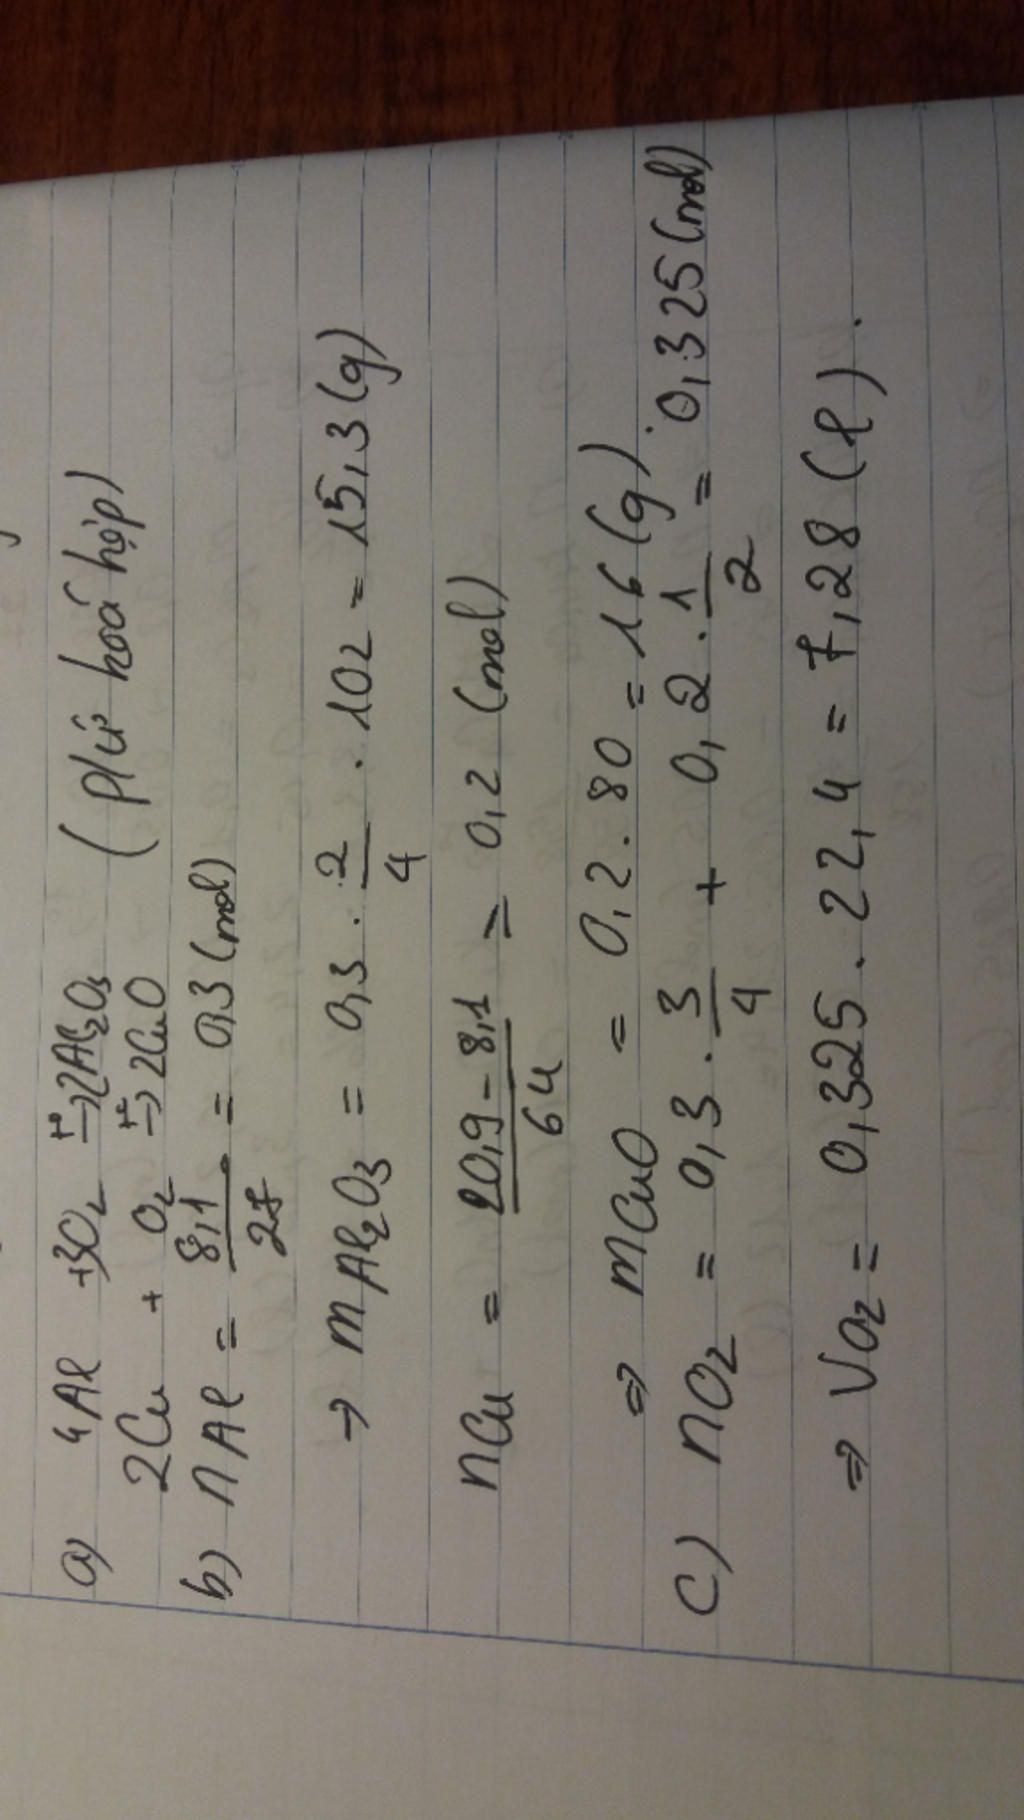 a) 4Al + 3O₂ t°→ 2Al₂O₃
2Cu + O₂ t°→ 2CuO (p/ứ hoá hợp)
b) nAl = 8,1/27 = 0,3 (mol)
→ mAl₂O₃ = 0,3 . 2/4 . 102 = 15,3 (g)
nCu = 20,9 - 8,1/64 = 0,2 (mol)
⇒ mCuO = 0,2 . 80 = 16 (g)
c) nO₂ = 0,3 . 3/4 + 0,2 . 1/2 = 0,325 (mol)
⇒ VO₂ = 0,325 . 22,4 = 7,28 (l).